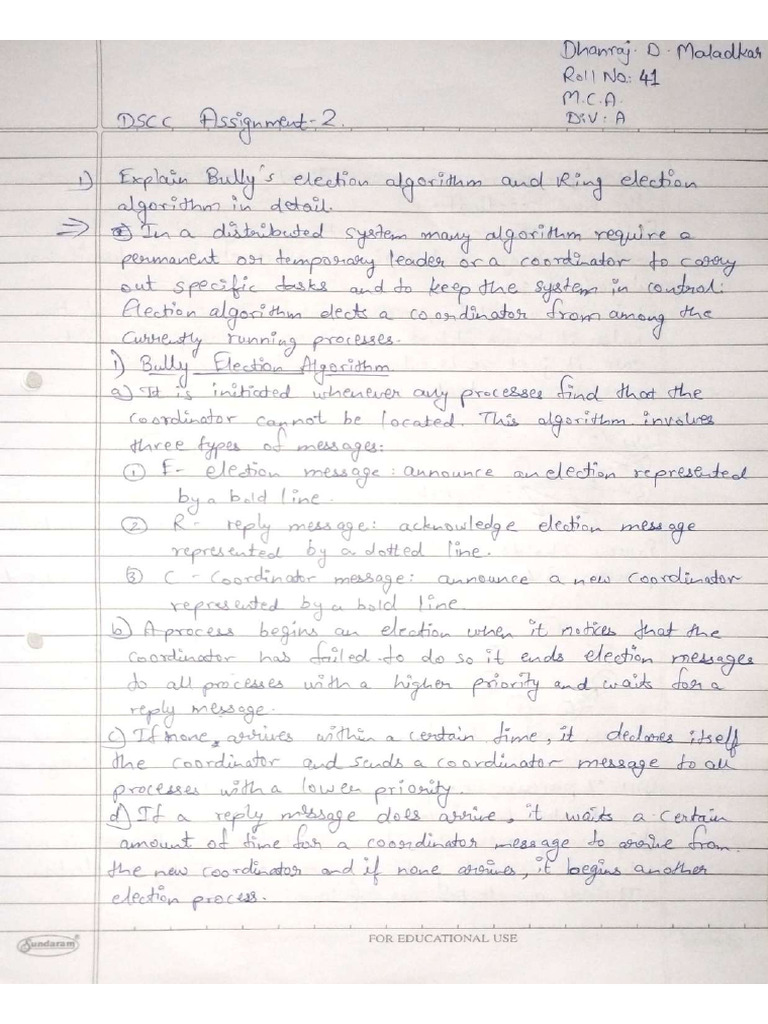 Dhanraj. D. Maladkar
Roll No: 41
M.C.A.
Div: A
DSCC Assignment-2.
1) Explain Bully's election algorithm and Ring election
algorithm in detail.
⇒ In a distributed system many algorithm require a
permanent or temporary leader or a coordinator to carry
out specific tasks and to keep the system in control.
Election algorithm elects a coordinator from among the
currently running processes.
1) Bully Election Algorithm
a) It is initiated whenever any processes find that the
coordinator cannot be located. This algorithm involves
three types of messages:
① E- election message: announce an election represented
by a bold line.
② R- reply message: acknowledge election message
represented by a dotted line.
③ C - Coordinator message: announce a new coordinator
represented by a bold line.
b) A process begins an election when it notices that the
coordinator has failed. to do so it ends election messages
to all processes with a higher priority and waits for a
reply message.
c) If none arrives within a certain time, it declares itself
the coordinator and sends a coordinator message to all
processes with a lower priority.
d) If a reply message does arrive, it waits a certain
amount of time for a coordinator message to arrive from
the new coordinator and if none arrives, it begins another
election process.
Sundaram
FOR EDUCATIONAL USE